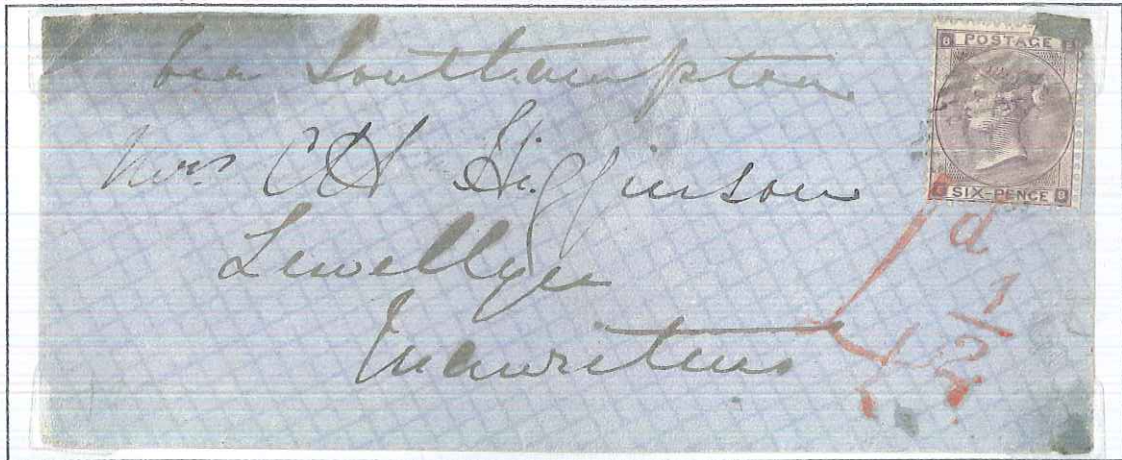 via Southampton
Mrs C H Higginson
Lewellyn
Mauritius
POSTAGE
SIX-PENCE
G B
d
4 1/2